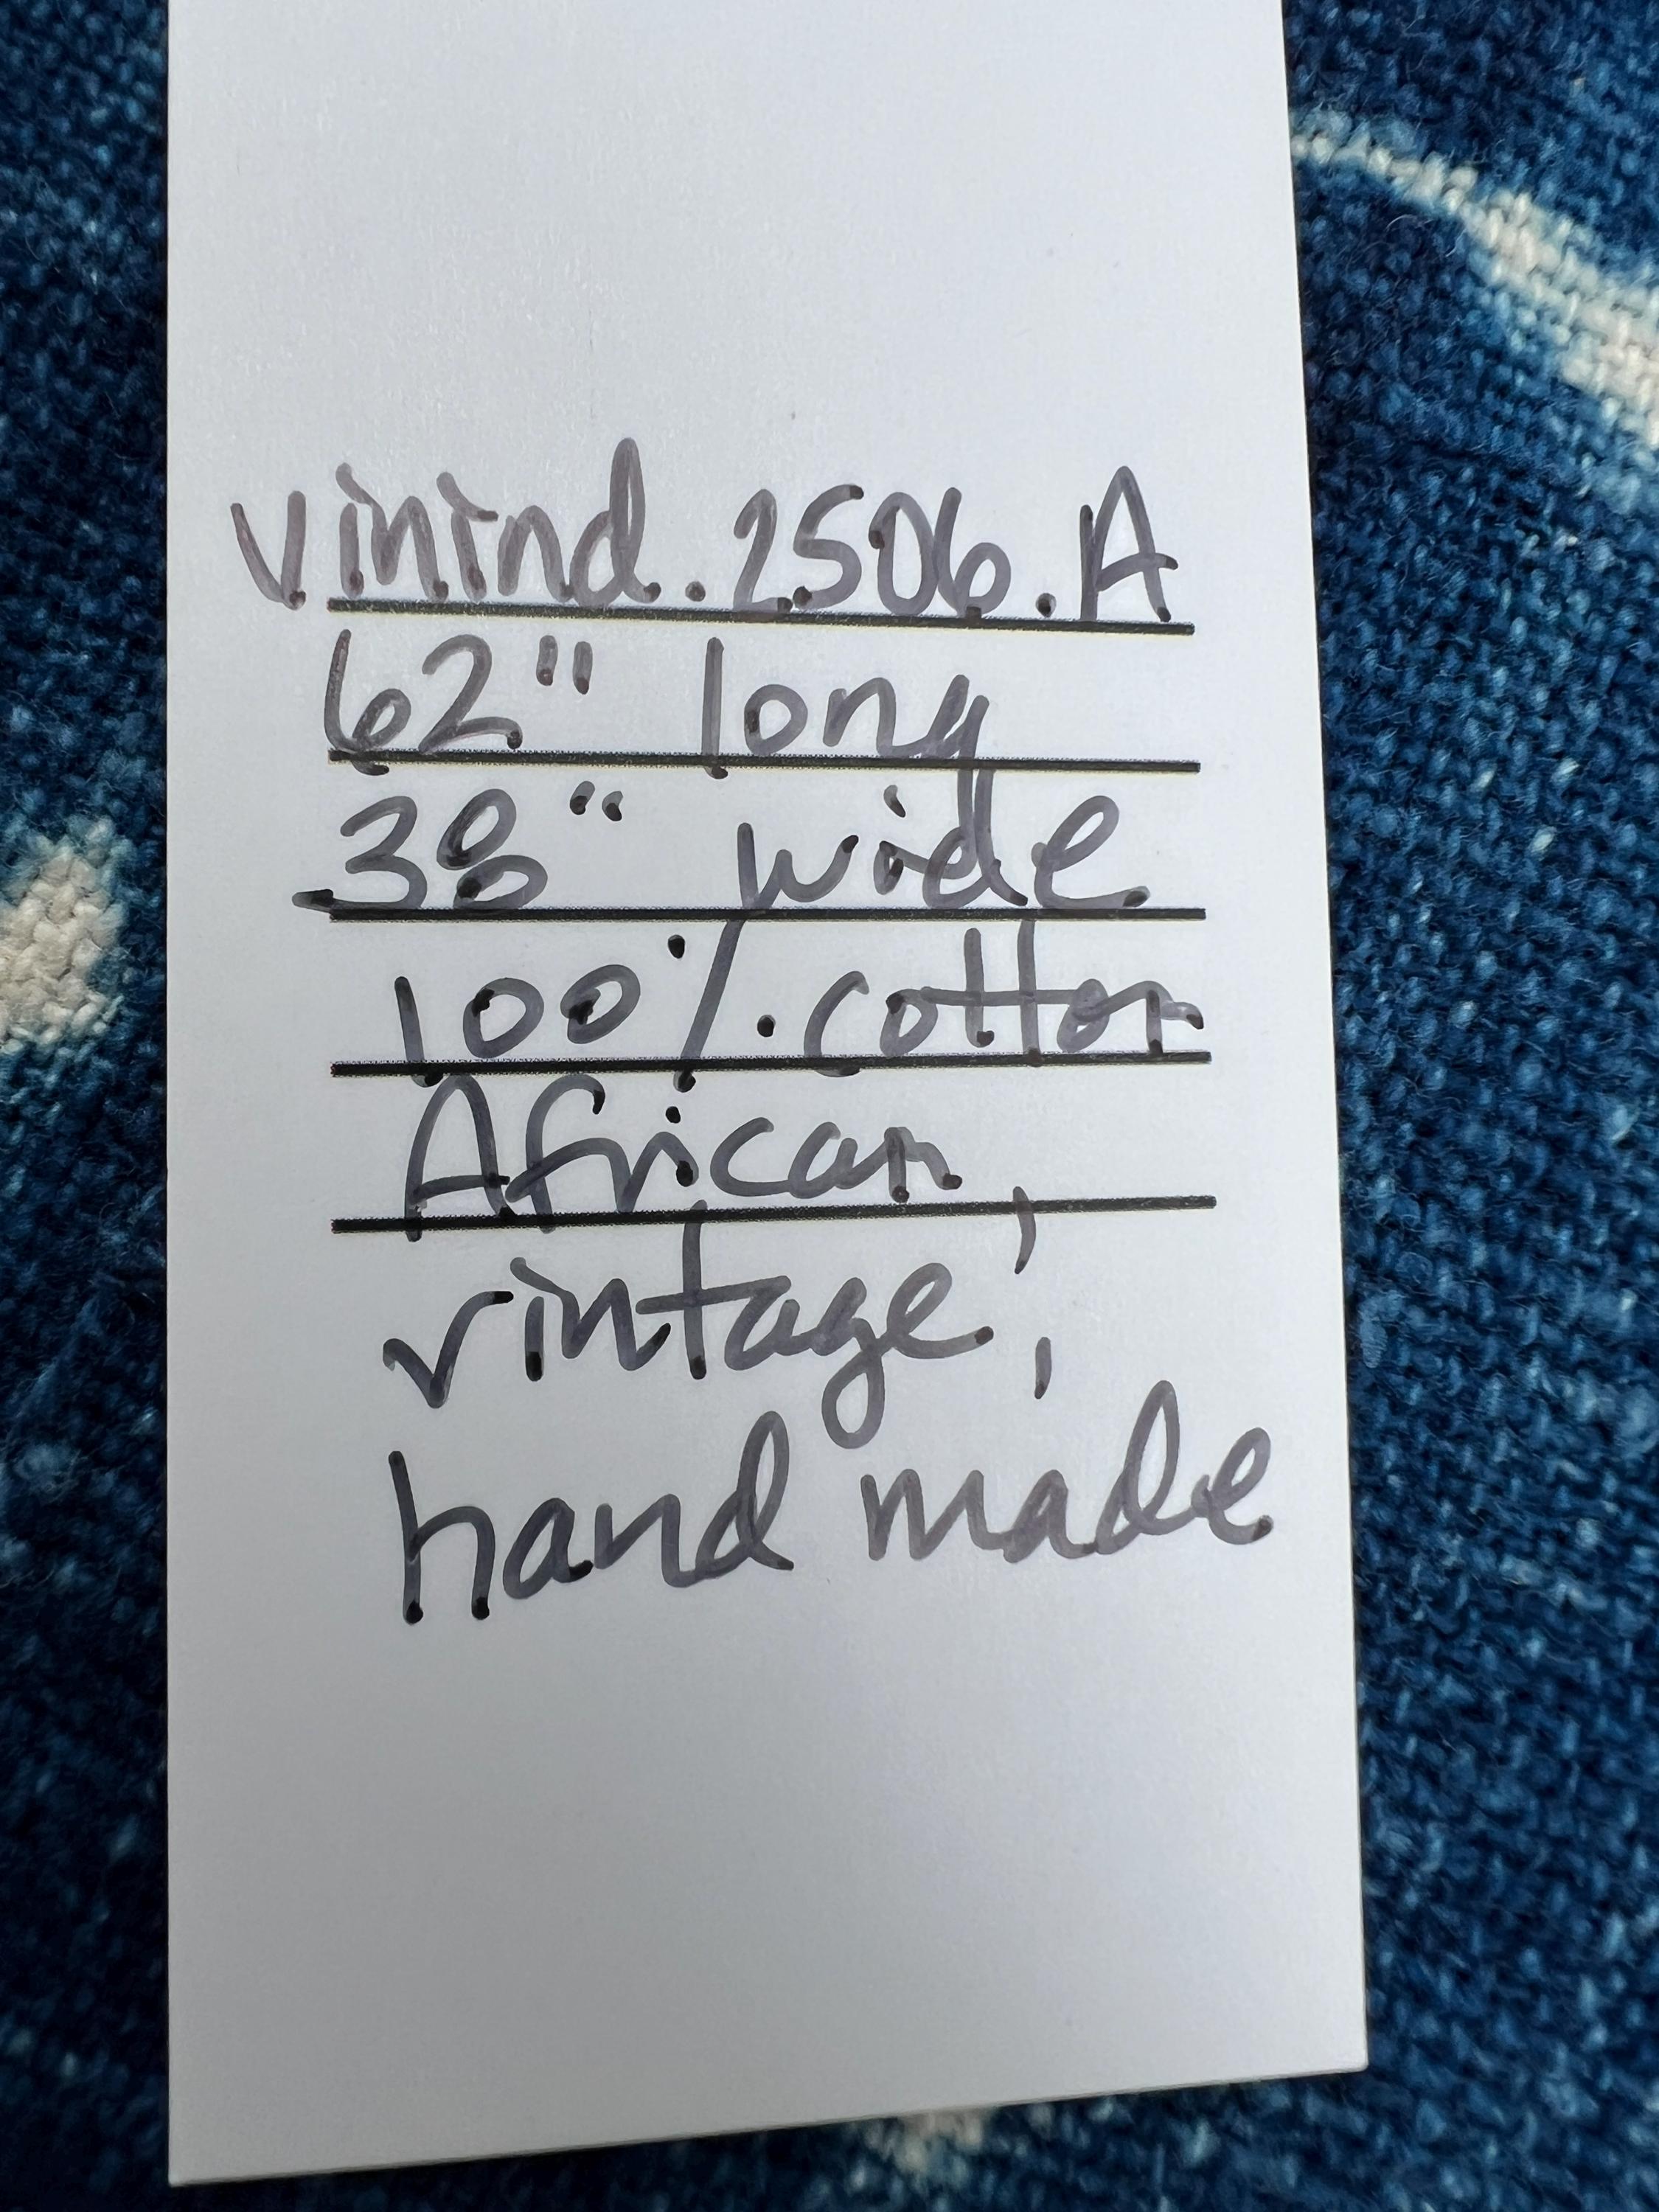 vinind.2506.A
62" long
38" wide
100% cotton
African,
vintage,
hand made